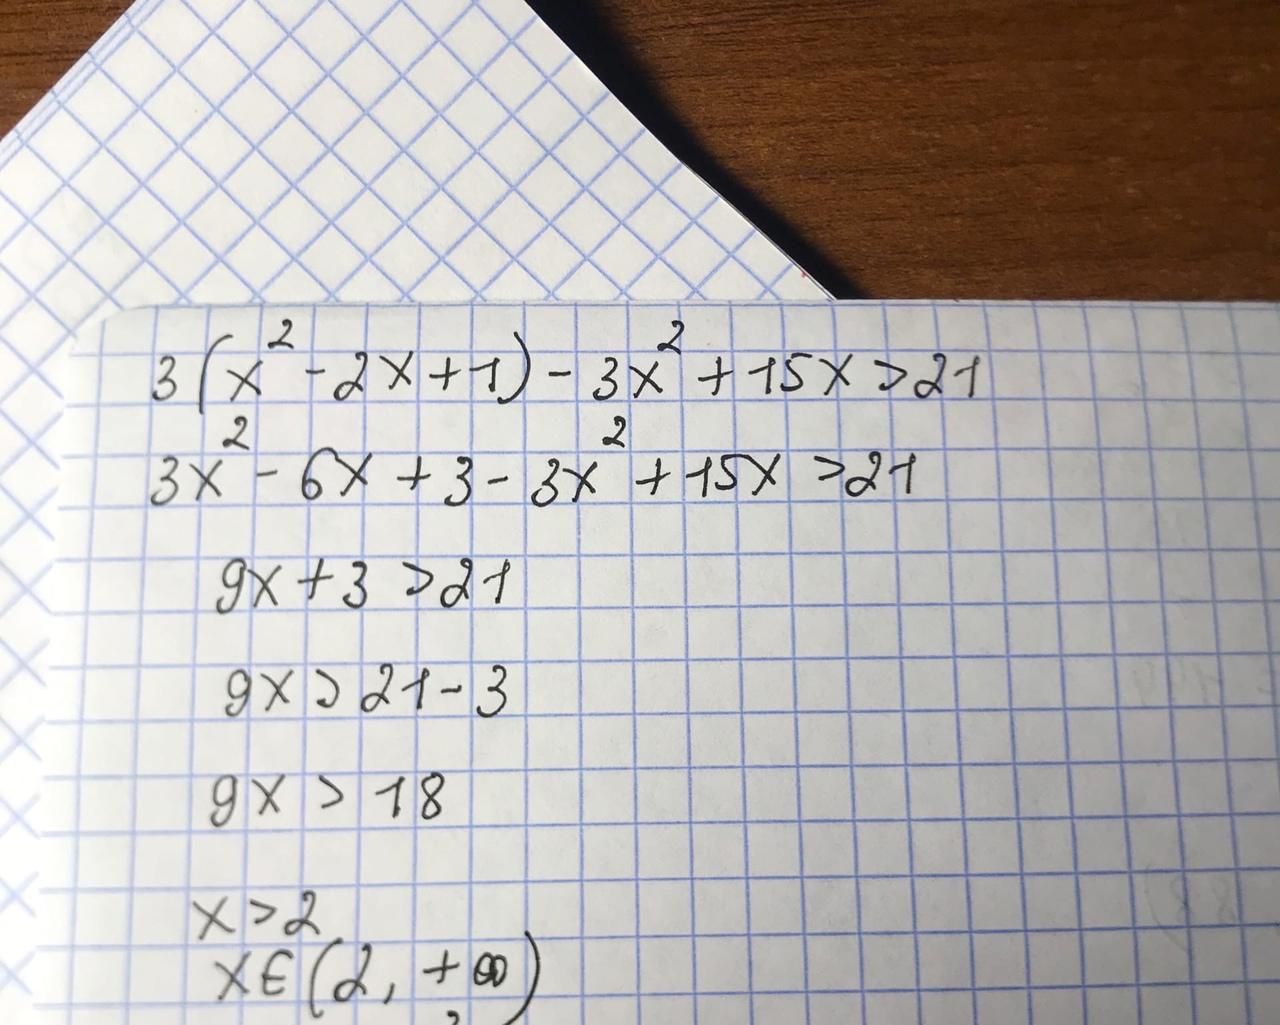 3(x² - 2x + 1) - 3x² + 15x > 21
3x² - 6x + 3 - 3x² + 15x > 21
9x + 3 > 21
9x > 21 - 3
9x > 18
x > 2
x ∈ (2, +∞)